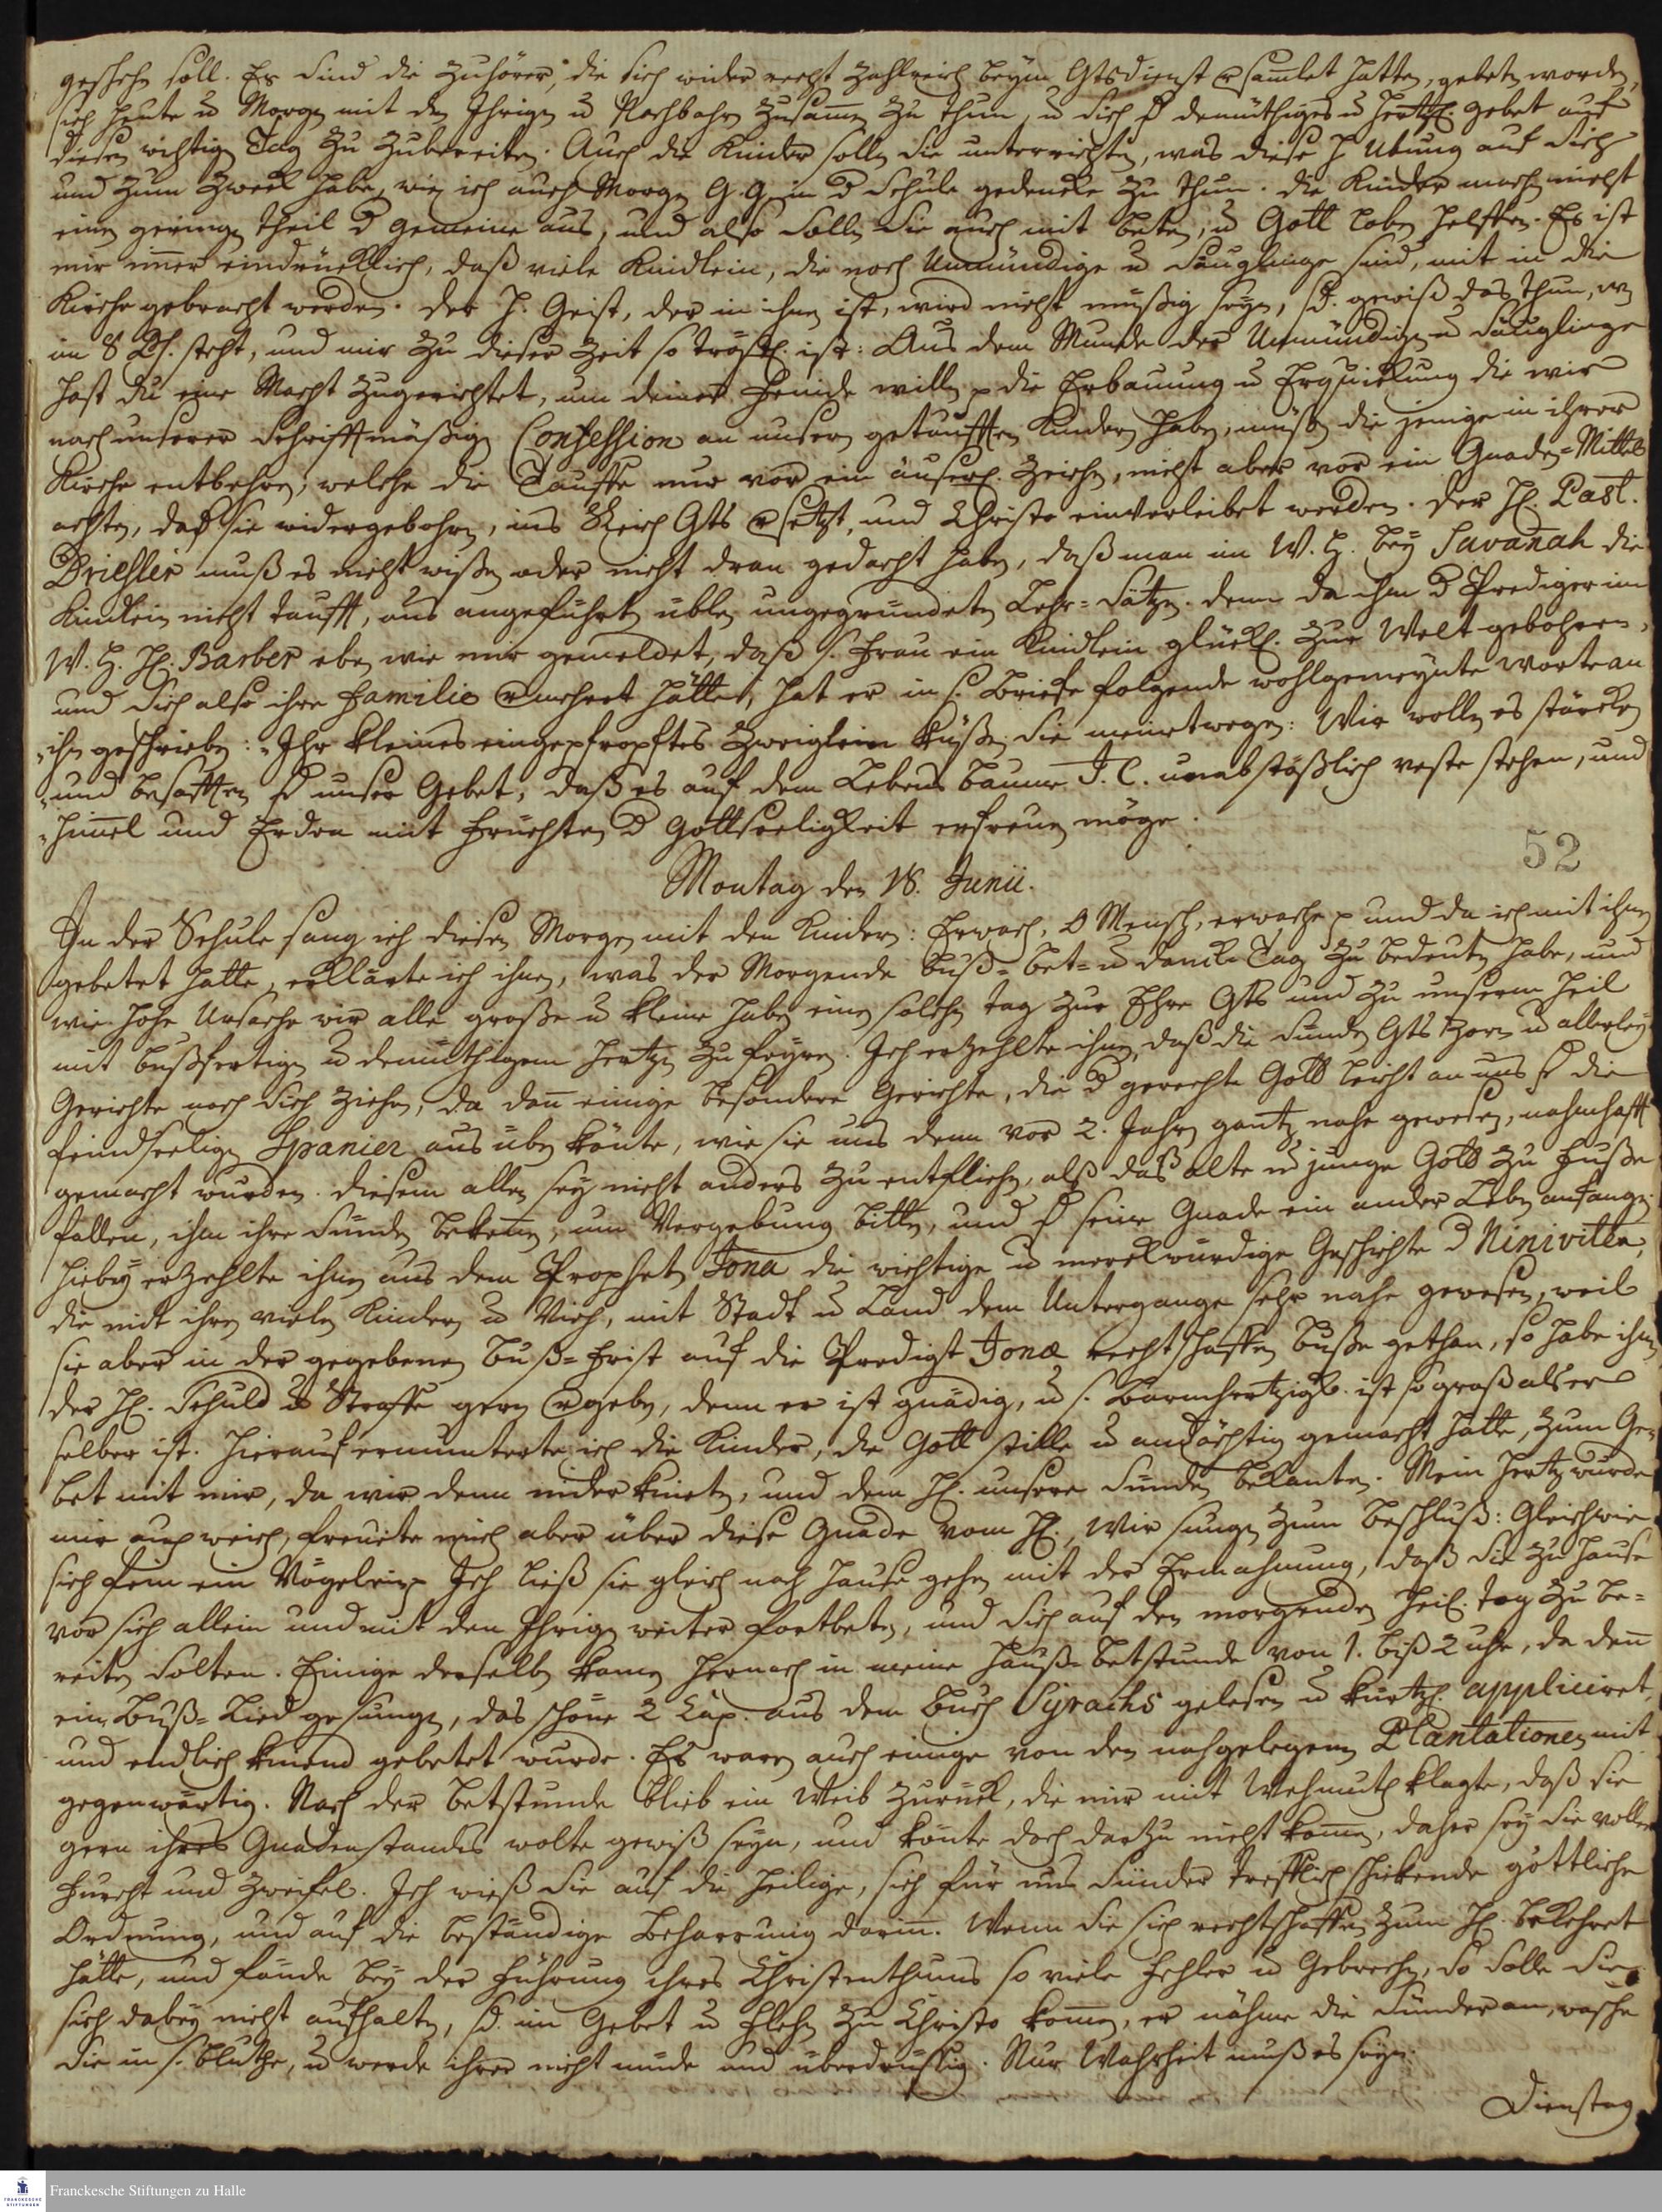 geschehen soll. Es sind die Zuhörer, die sich wider recht zahlreich beym Gtsdienst v̄samlet hatten, gebeten worden,
sich heute u. Morgen mit den Ihrigen u. Nachbahrn zusam̄en zu thun, u. sich d. demüthiges u. hertzl. Gebet auf
diesen wichtigen Tag zu zubereiten. Auch die Kinder sollen sie unterrichten, was diese h. Ubung auf sich
und zum Zweck habe, wie ich auch Morgen G. g. in d Schule gedencke zu thun. Die Kinder machen nicht
einen geringen Theil d Gemeine aus, und also sollen sie auch mit beten, u. Gott loben helffen. Es ist
mir im̄er eindrücklich, daß viele Kindlein, die noch Unmündige u. Säuglinge sind, mit in die
Kirche gebracht werden. Der H. Geist, der in ihnen ist, wird nicht müßig seyn, sd. gewiß das thun, w
im 8 Ps. steht, und mir zu dieser Zeit so tröstl. ist: Aus dem Munde der Unmündigen u. Säuglinge
hast du eine Macht zugerichtet, um deiner Feinde willen p die Erbauung u. Erquickung die wir
nach unserer Schrifftmäßigen Confession an unsern getaufften Kindern haben, müßen die jenige in ihrer
Kirche entbehren, welche die Tauffe nur vor ein äuserl. Zeichen, nicht aber vor ein Gnaden-Mittel
achten, daß sie widergebohren, ins Reich Gts v̄setzt, und Christo einverleibet werden. Der H. Past.
Driesler muß es nicht wißen oder nicht dran gedacht haben, daß man im W. H. bey Savanah die
Kindlein nicht taufft, aus angeführten üblen ungegründeten Lehr-Sätzen. Denn da ihm d Prediger im
W. H. H. Barber eben wie mir gemeldet, daß s. Frau ein Kindlein glückl. zur Welt gebohren,
und sich also ihre Familie v̄mehret hätte, hat er in s. Briefe folgende wohlgemeynte Worte an
„ihn geschrieben: „Ihr kleines eingepfropftes Zweiglein küßen Sie meinetwegen: Wir wollen es stärcken
„und besafften d unser Gebet, daß es auf dem Lebens Baume J. C. unabstößlich veste stehen, und
„Him̄el und Erden mit Früchten d Gottseeligkeit erfreuen möge.
52
Montag den 18. Junii.
In der Schule sang ich diesen Morgen mit den Kindern: Erwach, O Mensch, erwache p und da ich mit ihnen
gebetet hatte, erklärte ich ihnen, was der Morgende Buß- Bet- u. Danck-Tag zu bedeuten habe, und
wie hohe Ursache wir alle große u. kleine haben einen solchen Tag zur Ehre Gts und zu unserem Heil
mit bußfertigen u. demüthigem Hertzen zu feyren. Ich erzehlte ihnen, daß die Sünden Gts Zorn u. allerley
Gerichte nach sich ziehen, da dan̄ einige besondere Gerichte, die d gerechte Gott leicht an uns d die
feindseeligen Spanier ausüben könte, wie sie uns denn vor 2. Jahren gantz nahe gewesen, nahmhafft
gemacht wurden. Diesem allen sey nicht anders zu entfliehen, alß daß alte u. junge Gott zu Fuße
fallen, ihm ihre Sünden beken̄en, um Vergebung bitten, und d seine Gnade ein ander Leben anfangen.
Hiebey erzehlte ihnen aus dem Propheten Jona die wichtige u. merckwürdige Geschichte d Niniviten,
die mit ihren vielen Kindern u. Vieh, mit Stadt u. Land dem Untergange sehr nahe gewesen, weil
sie aber in der gegebenen Buß-Frist auf die Predigt Jonæ rechtschaffen Buße gethan, so habe ihnen
der H. Schuld u. Straffe gern v̄geben, denn er ist gnädig, u. s. Barmhertzigk. ist so groß als er
selber ist. Hierauf ermunterte ich die Kinder, die Gott stille u. andächtig gemacht hatte, zum Ge-
bet mit mir, da wir denn nider knieten, und dem H. unsere Sünden bekanten. Mein Hertz wurde
mir auch weich, freuete mich aber über diese Gnade vom H. Wir sungen zum Beschluß: Gleichwie
sich fein ein Vögelein p Ich ließ sie gleich nach Hause gehen mit der Ermahnung, daß sie zu Hause
vor sich allein und mit den Ihrigen weiter fortbeten, und sich auf den morgenden Heil. Tag zu be-
reiten solten. Einige derselben kamen hernach in meine Hauß-Betstunde von 1. biß 2 Uhr, da den̄
ein Buß-Lied gesungen, das schöne 2 Cap. aus dem Buch Syrachs gelesen u. kürtzl. appliciret,
und endlich kniend gebetet wurde. Es waren auch einige von den nahgelegenen Plantationen mit
gegenwärtig. Nach der Betstunde blieb ein Weib zurück, die mir mit Wehmuth klagte, daß sie
gern ihres Gnadenstandes wolte gewiß seyn, und könte doch darzu nicht kom̄en, daher sey sie voller
Furcht und Zweifel. Ich wieß sie auf die heilige, sich für uns Sünder trefflich schickende göttliche
Ordnung, und auf die beständige Beharrung darin̄. Wenn sie sich rechtschaffen zum H. bekehret
hätte, und fände bey der Führung ihres Christenthums so viele Fehler u. Gebrechen, so solle sie
sich dabey nicht aufhalten, sd. im Gebet u. Flehen zu Christo kom̄en, er nähme die Sünder an, wasche
sie in s. Bluthe, u. werde ihrer nicht müde und überdrüßig. Nur Wahrheit muß es seyn.
Dienstag
Franckesche Stiftungen zu Halle
FRANCKESCHE STIFTUNGEN